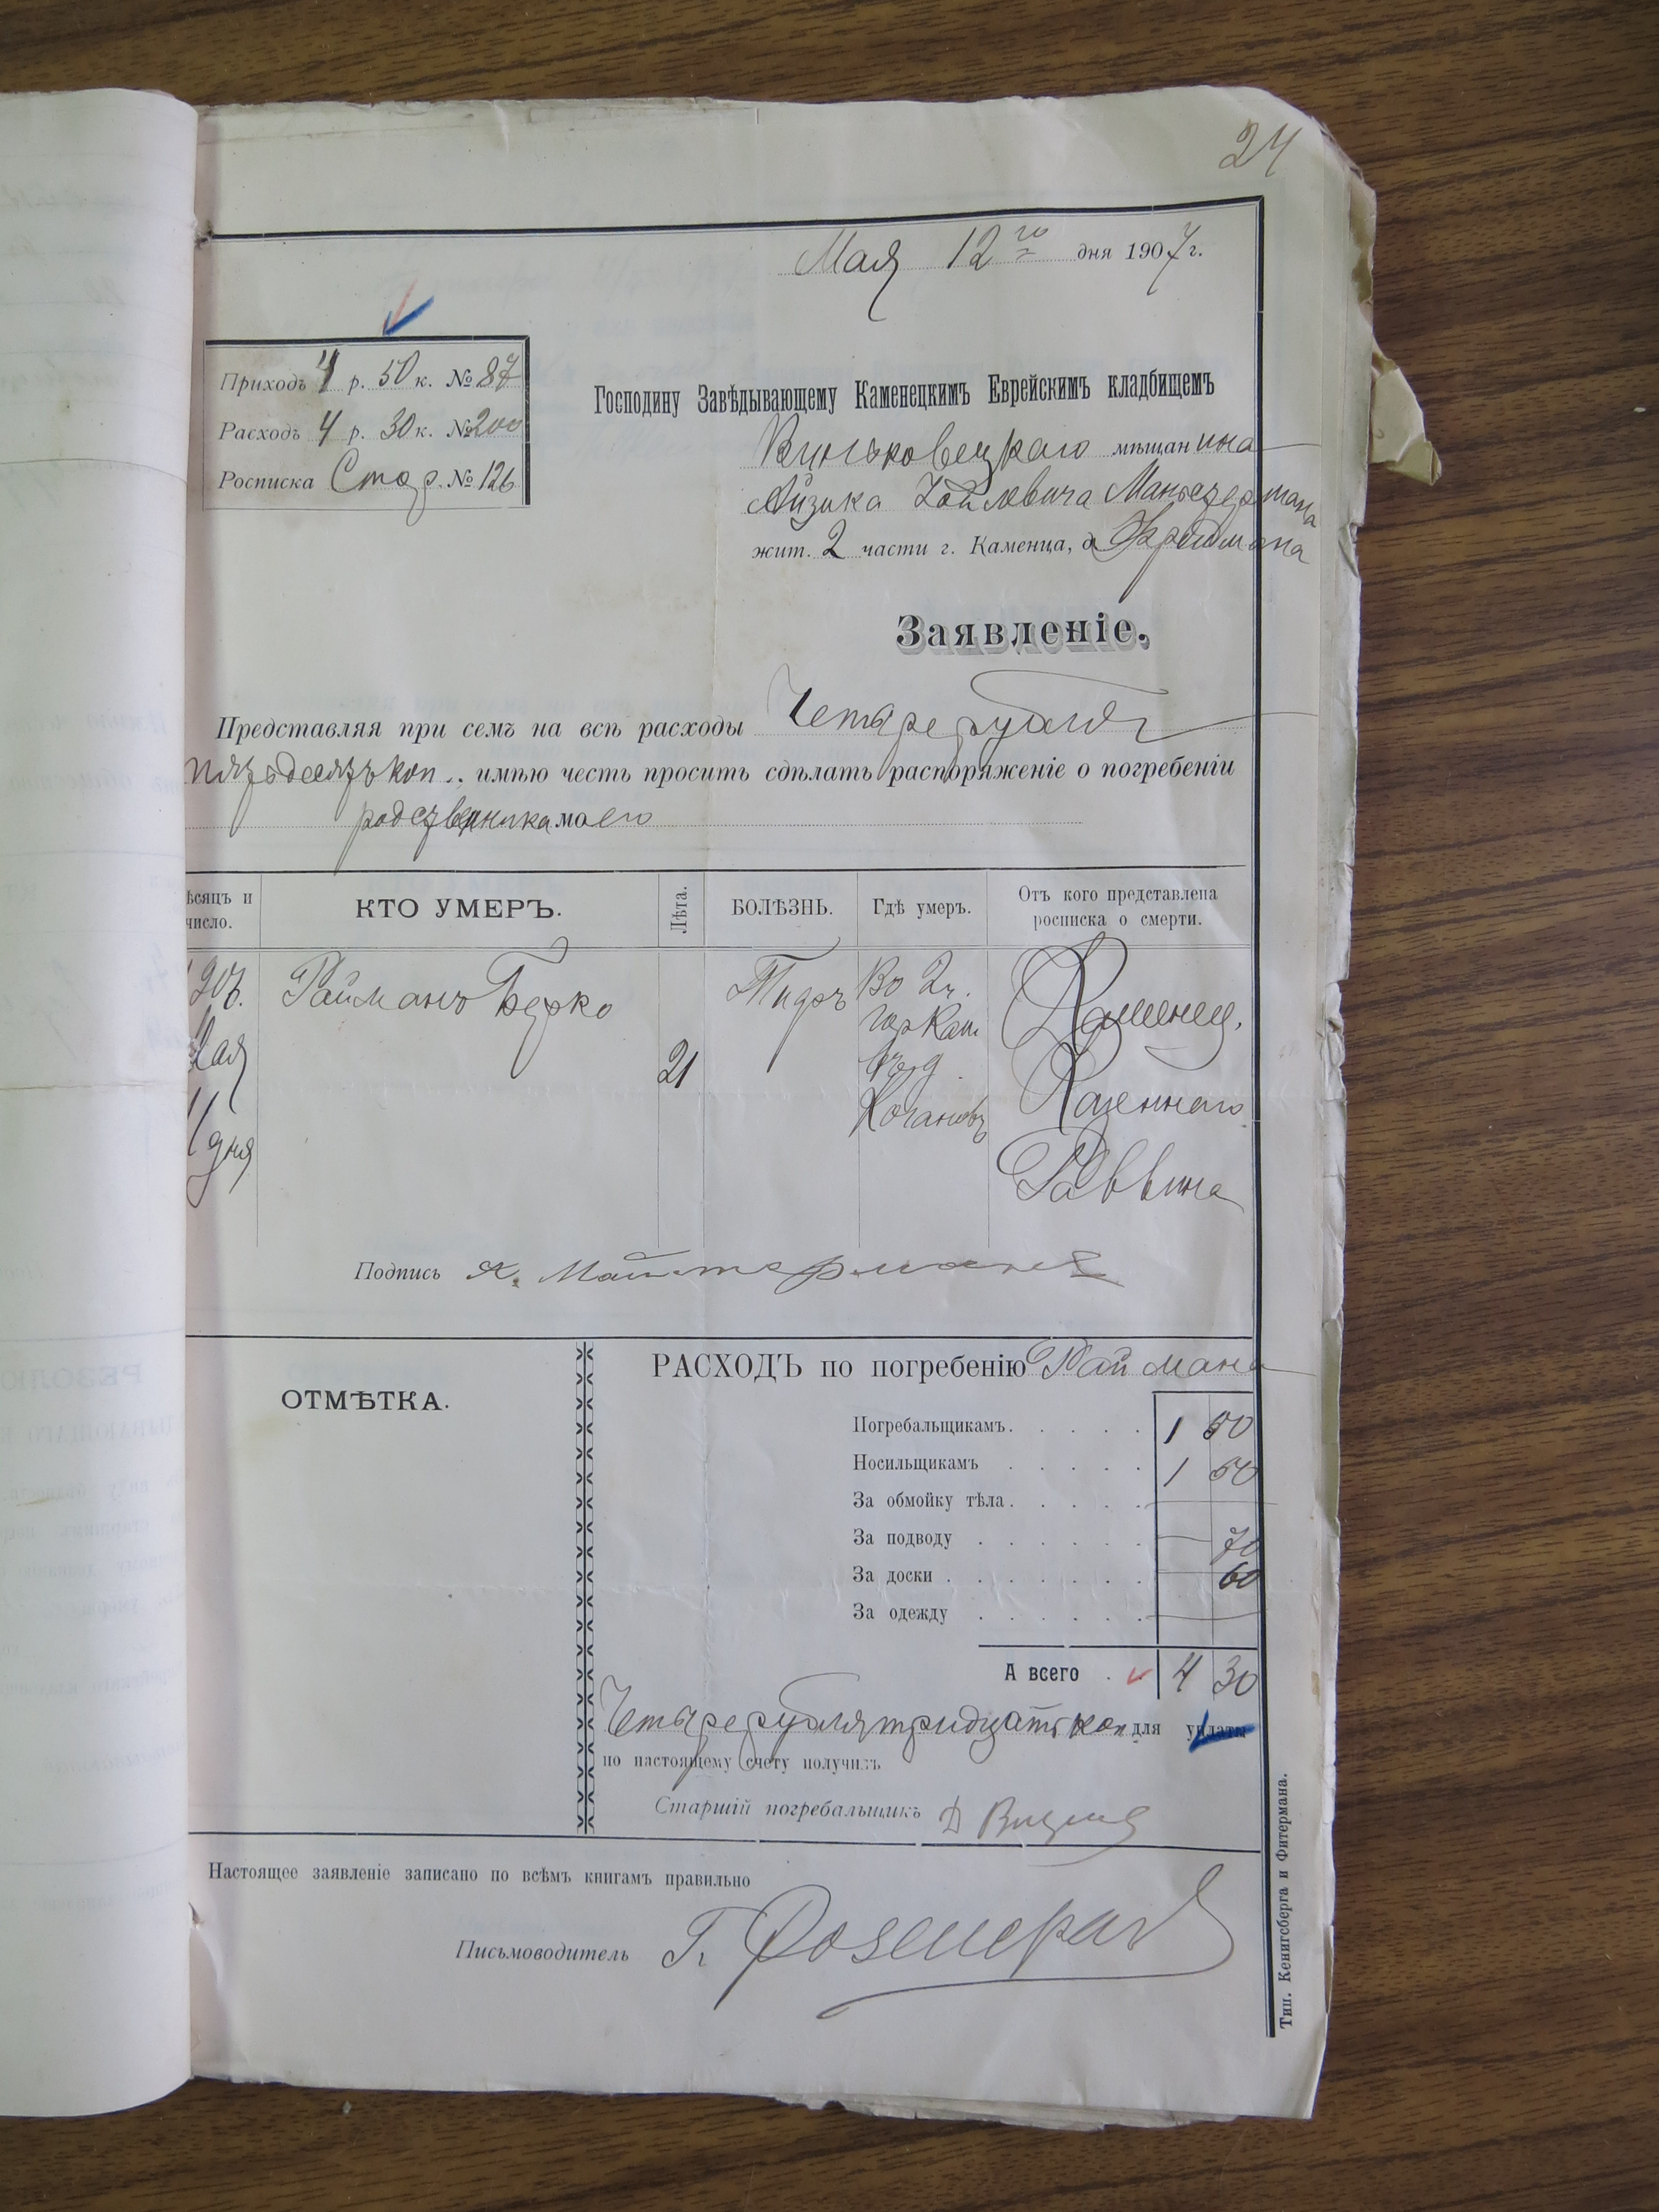 24
Мая 12 го дня 1907 г.
Приходъ 4 р. 50 к. № 87
Расходъ 4 р. 30 к. № 200
Росписка Стор. № 126
Господину Завѣдывающему Каменецкимъ Еврейскимъ кладбищемъ
Виньковецкаго мѣщанина
Айзика
жит. 2 части г. Каменца, д Фридмана
Заявленіе.
Представляя при семъ на всѣ расходы Четыре рубля
пятьдесятъ коп.. имѣю честь просить сдѣлать распоряженіе о погребеніи
родственника моего
ѣсяцъ и число. КТО УМЕРЪ. Лѣта. БОЛѢЗНЬ. Гдѣ умеръ. Отъ кого представлена росписка о смерти.
907. Райманъ Берко 21 Тифъ Во 2 ч. гор Кам въ д. Когановъ Каменец. Казеннаго Раввина
Мая
11 дня
Подпись А. Майстерманъ
ОТМѢТКА.
РАСХОДЪ по погребенію Раймана
Погребальщикамъ. 1 50
Носильщикамъ 1 50
За обмойку тѣла.
За подводу — 70
За доски 60
За одежду
А всего 4 30
Четыре рубля тридцать коп для уплаты
по настоящему счету получилъ
Старшій погребальщикъ Д
Настоящее заявленіе записано по всѣмъ книгамъ правильно
Письмоводитель Г.
Тип. Кенигсберга и Фитермана.